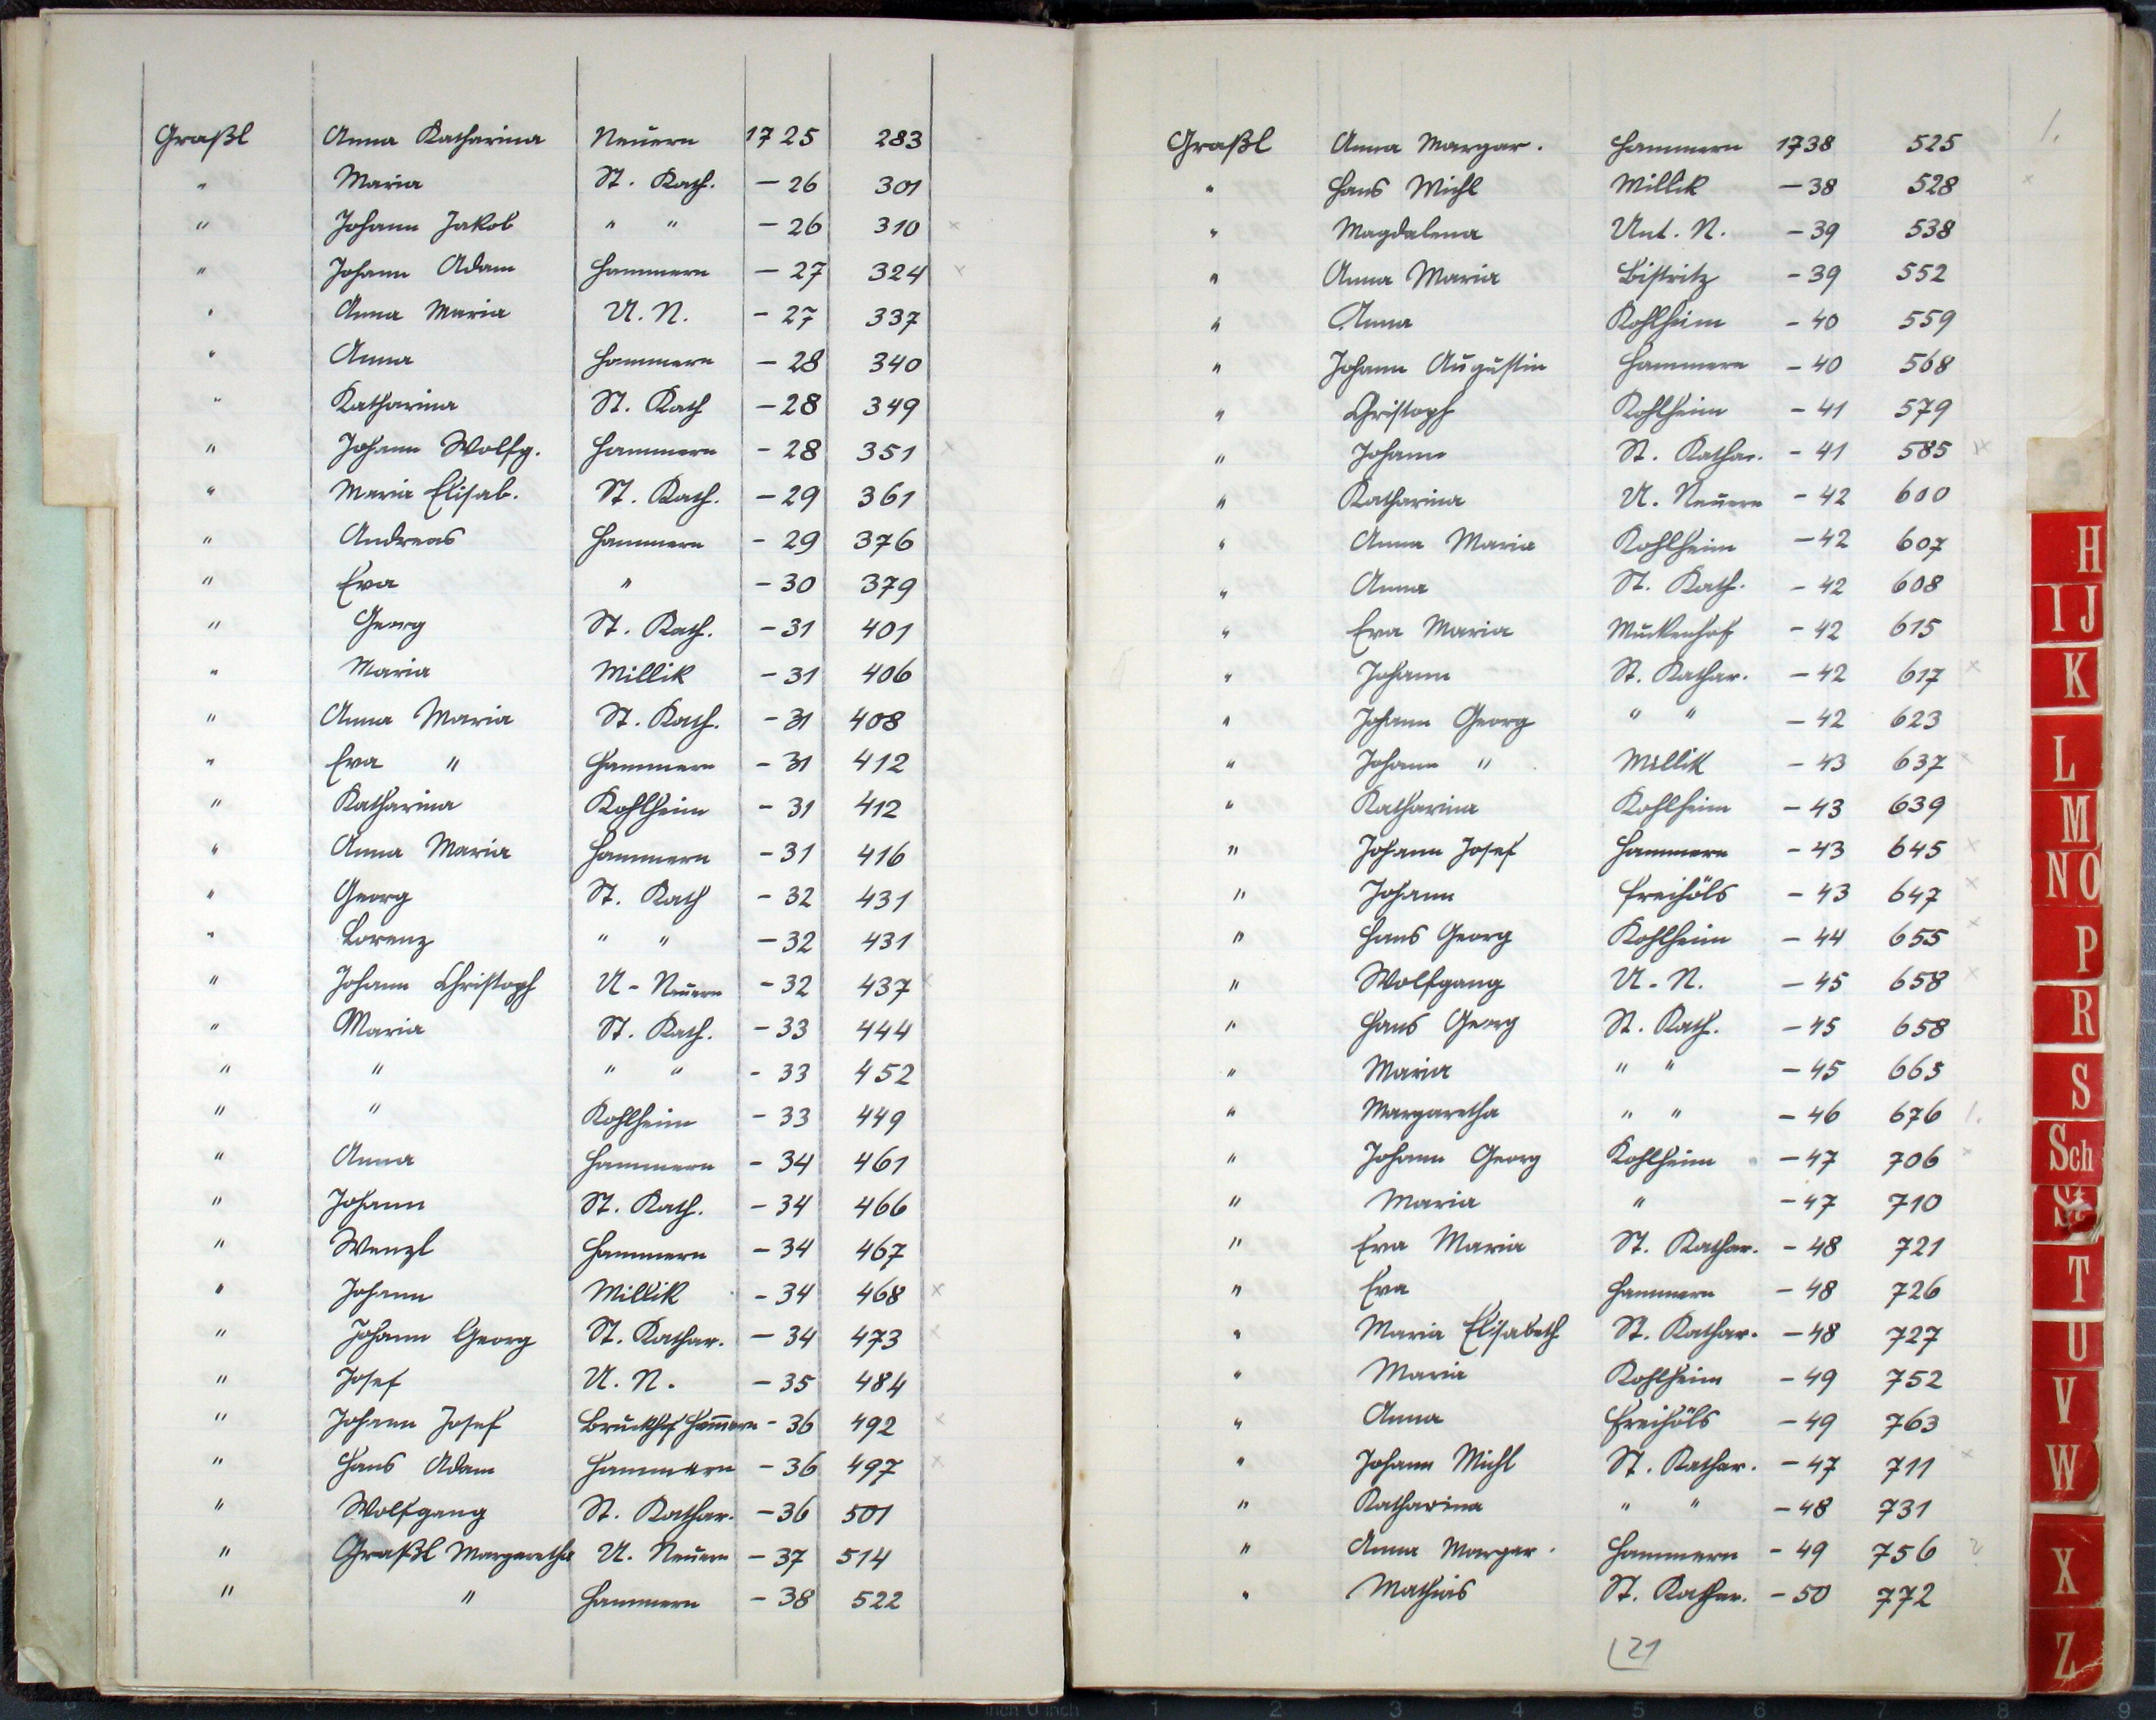 Graßl Anna Katharina Neuern 1725 283
" Maria St. Kath. – 26 301
" Johann Jakob " " – 26 310 ×
" Johann Adam Hammern – 27 324 ×
" Anna Maria U. N. – 27 337
" Anna Hammern – 28 340
" Katharina St. Kath – 28 349
" Johann Wolfg. Hammern – 28 351 ×
" Maria Elisab. St. Kath. – 29 361
" Andreas Hammern – 29 376
" Eva " – 30 379
" Georg St. Kath. – 31 401
" Maria Millik – 31 406
" Anna Maria St. Kath. – 31 408
" Eva " Hammern – 31 412
" Katharina Kohlheim – 31 412
" Anna Maria Hammern – 31 416
" Georg St. Kath – 32 431
" Lorenz " " – 32 431
" Johann Christoph U – Neuern – 32 437 ×
" Maria St. Kath. – 33 444
" " " " – 33 452
" " Kohlheim – 33 449
" Anna Hammern – 34 461
" Johann St. Kath. – 34 466
" Wenzl Hammern – 34 467
" Johann Millik – 34 468 ×
" Johann Georg St. Kathar. – 34 473 ×
" Josef U. N. – 35 484
" Johann Josef Hammern – 36 492 ×
" Hans Adam Hammern – 36 497 ×
" Wolfgang St. Kathar. – 36 501
" Graßl Margaretha U. Neuern – 37 514
" " Hammern – 38 522
1.
Graßl Anna Margar. Hammern 1738 525
" Hans Michl Millik – 38 528 ×
" Magdalena Unt. N. – 39 538
" Anna Maria Bistritz – 39 552
" Anna Kohlheim – 40 559
" Johann Augustin Hammern – 40 568
" Christoph Kohlheim – 41 579
" Johann St. Kathar. – 41 585 ×
" Katharina U. Neuern – 42 600
" Anna Maria Kohlheim – 42 607
" Anna St. Kath. – 42 608
" Eva Maria Muckenhof – 42 615
" Johann St. Kathar. – 42 617 ×
" Johann Georg " " – 42 623
" Johann " Millik – 43 637 ×
" Katharina Kohlheim – 43 639
" Johann Josef Hammern – 43 645 ×
" Johann Freihöls – 43 647 ×
" Hans Georg Kohlheim – 44 655 ×
" Wolfgang U. N. – 45 658 ×
" Hans Georg St. Kath. – 45 658
" Maria " " – 45 663
" Margaretha " " – 46 676 1.
" Johann Georg Kohlheim – 47 706 ×
" Maria " – 47 710
" Eva Maria St. Kathar. – 48 721
" Eva Hammern – 48 726
" Maria Elisabeth St. Kathar. – 48 727
" Maria Kohlheim – 49 752
" Anna Freihöls – 49 763
" Johann Michl St. Kathar. – 47 711 ×
" Katharina " " – 48 731
" Anna Margar. Hammern – 49 756 ?
" Mathias St. Kathar. – 50 772
21
H
IJ
K
L
M
NO
P
R
S
Sch
St
T
U
V
W
X
Z